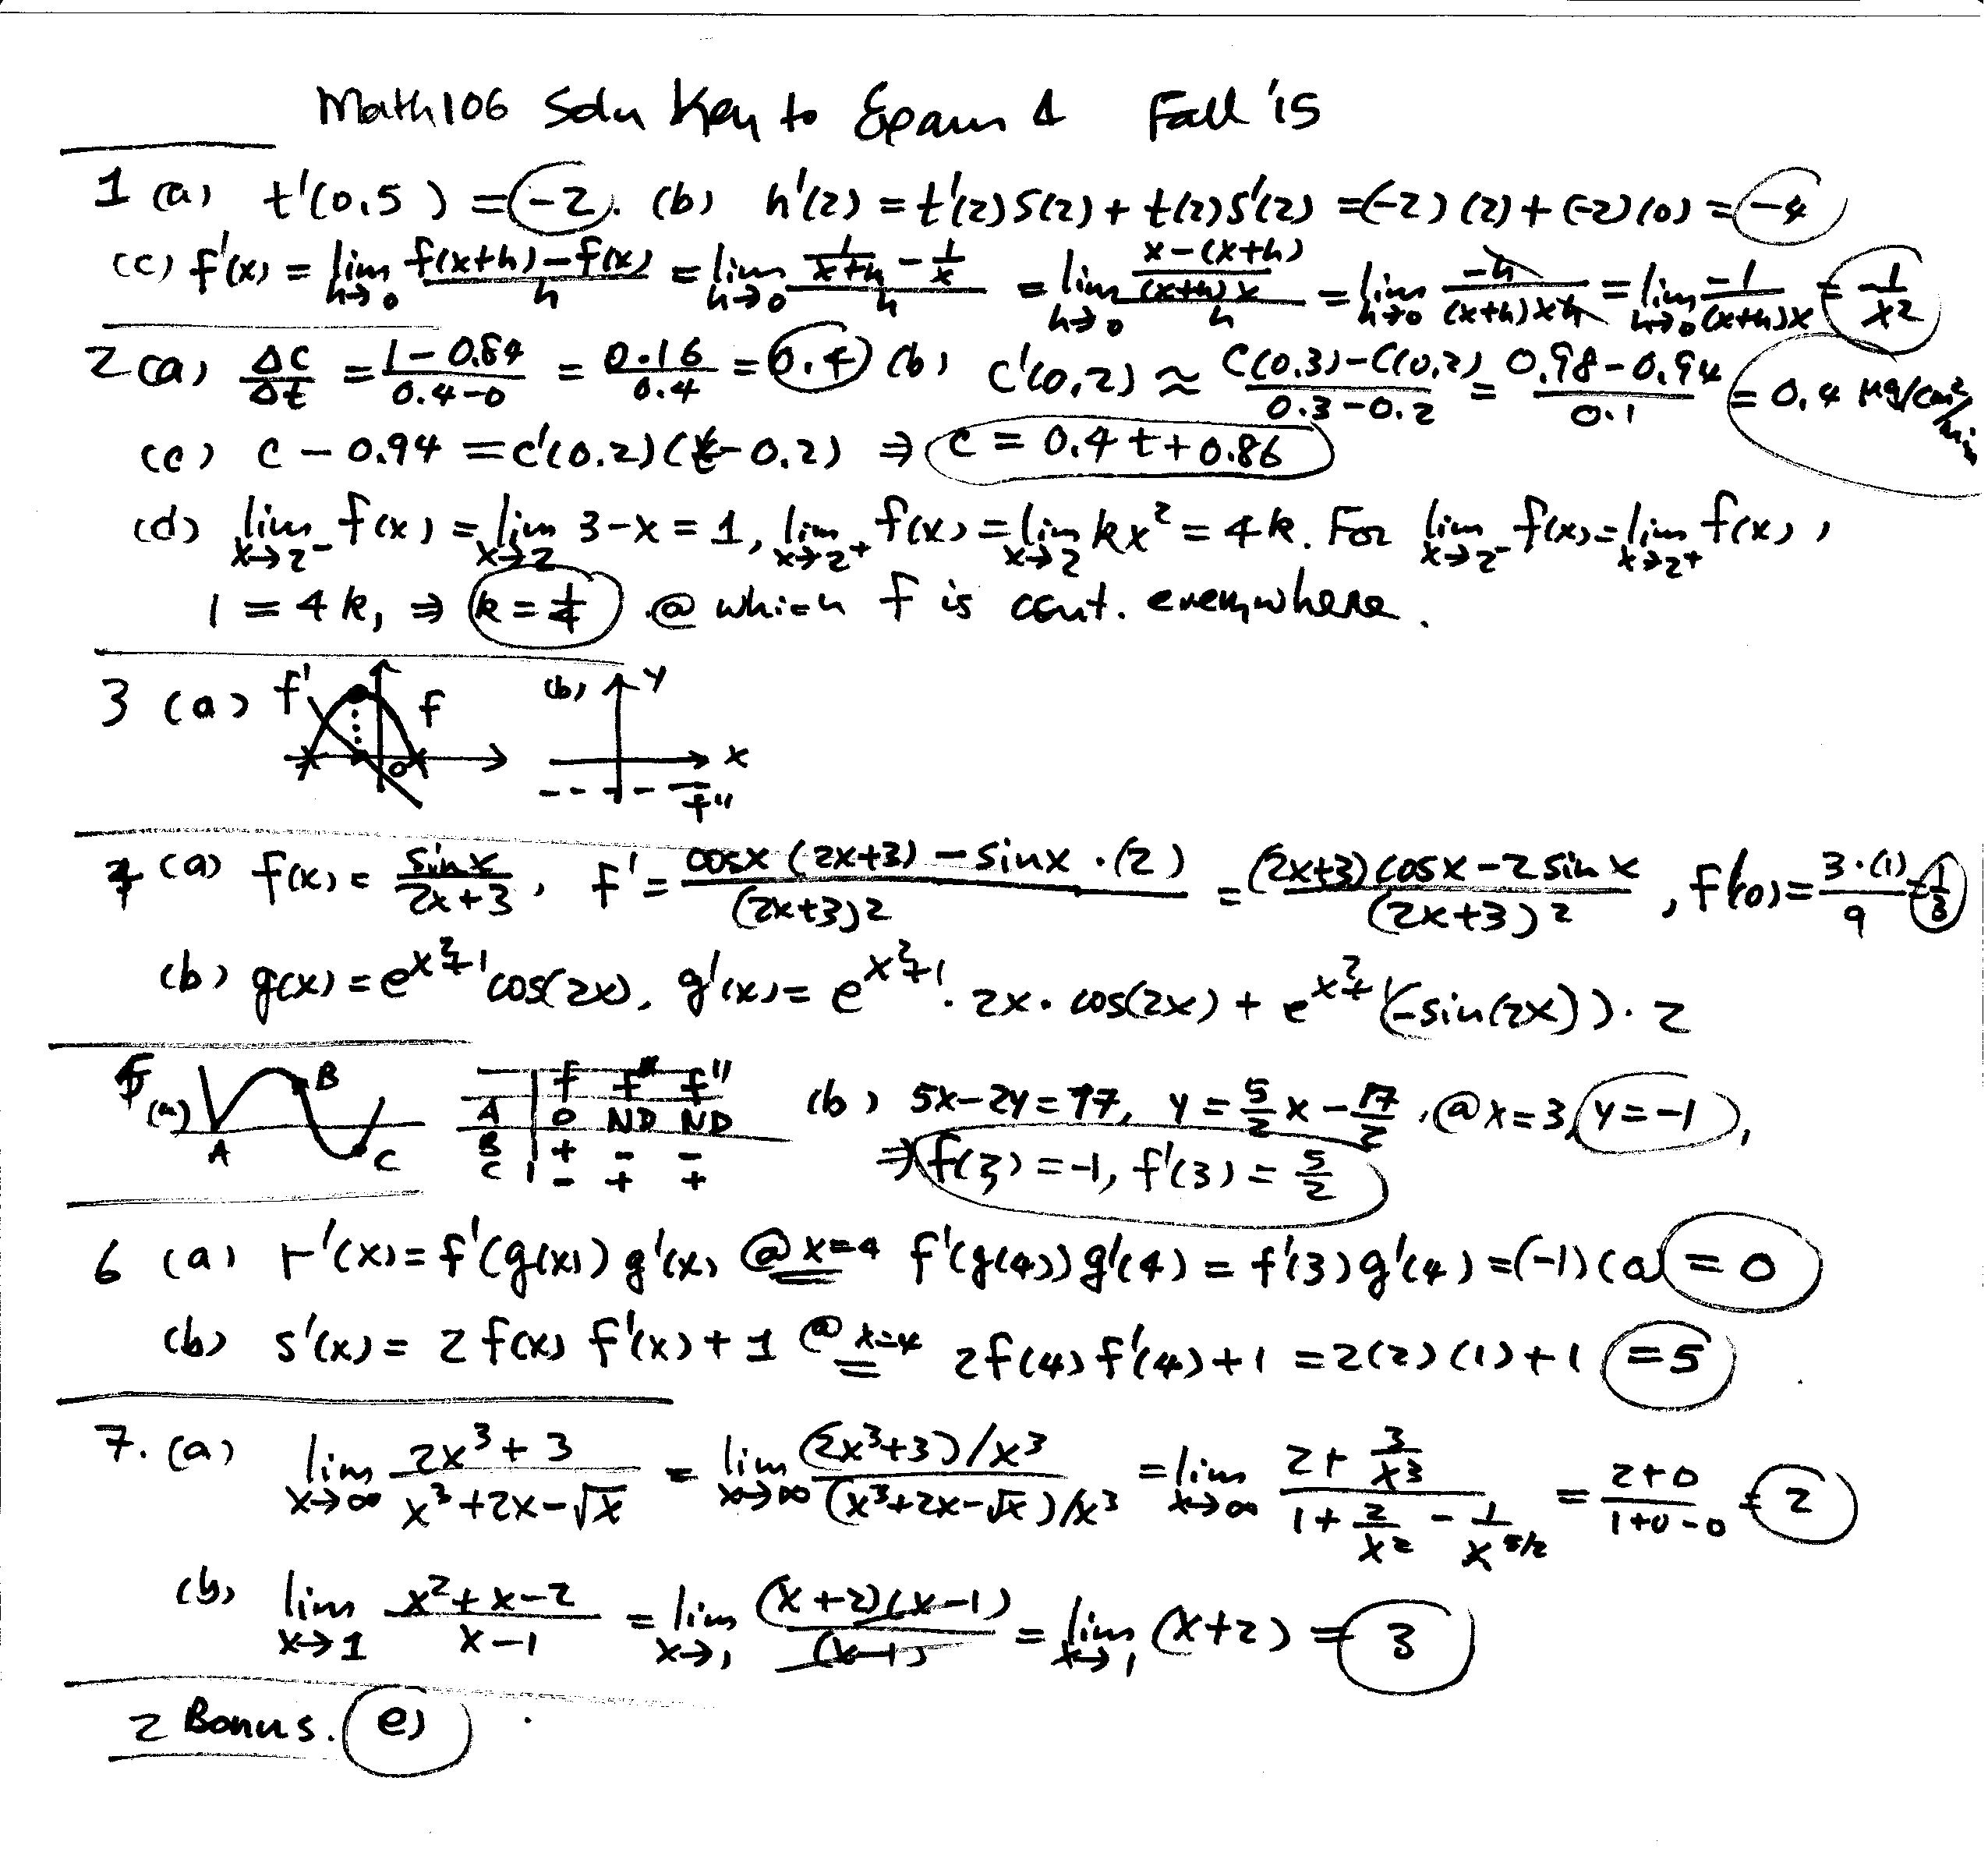 Math106 Soln Key to Exam 1 Fall '15
1 (a) t'(0.5) = -2. (b) h'(2) = t'(2)S(2) + t(2)S'(2) = (-2)(2) + (-2)(0) = -4
(c) f'(x) = lim_{h→0} (f(x+h) - f(x))/h = lim_{h→0} (1/(x+h) - 1/x)/h = lim_{h→0} ((x-(x+h))/((x+h)x))/h = lim_{h→0} -h/((x+h)xh) = lim_{h→0} -1/((x+h)x) = -1/x²
2 (a) ΔC/Δt = (1-0.84)/(0.4-0) = 0.16/0.4 = 0.4 (b) C'(0.2) ≈ (C(0.3)-C(0.2))/(0.3-0.2) = (0.98-0.94)/0.1 = 0.4 μg/cm³/min
(c) C - 0.94 = C'(0.2)(t-0.2) ⇒ C = 0.4t + 0.86
(d) lim_{x→2⁻} f(x) = lim_{x→2} 3-x = 1, lim_{x→2⁺} f(x) = lim_{x→2} kx² = 4k. For lim_{x→2⁻} f(x) = lim_{x→2⁺} f(x),
1 = 4k, ⇒ k = 1/4 @ which f is cont. everywhere.
3 (a) f' f 0 (b) y x f''
4 (a) f(x) = sinx/(2x+3), f' = (cosx(2x+3) - sinx·(2))/(2x+3)² = ((2x+3)cosx - 2sinx)/(2x+3)², f'(0) = 3·(1)/9 = 1/3
(b) g(x) = e^{x²+1} cos(2x), g'(x) = e^{x²+1}·2x·cos(2x) + e^{x²+1}(-sin(2x))·2
5 (a) A B C
f f' f''
A 0 ND ND
B + - -
C - + +
(b) 5x-2y=17, y = 5/2 x - 17/2, @x=3, y=-1,
⇒ f(3) = -1, f'(3) = 5/2
6 (a) r'(x) = f'(g(x))g'(x) @x=4 f'(g(4))g'(4) = f'(3)g'(4) = (-1)(0) = 0
(b) s'(x) = 2f(x)f'(x)+1 @x=4 2f(4)f'(4)+1 = 2(2)(1)+1 = 5
7. (a) lim_{x→∞} (2x³+3)/(x³+2x-√x) = lim_{x→∞} (2x³+3)/x³ / (x³+2x-√x)/x³ = lim_{x→∞} (2+3/x³)/(1+2/x²-1/x^{5/2}) = (2+0)/(1+0-0) = 2
(b) lim_{x→1} (x²+x-2)/(x-1) = lim_{x→1} (x+2)(x-1)/(x-1) = lim_{x→1} (x+2) = 3
2 Bonus. e)